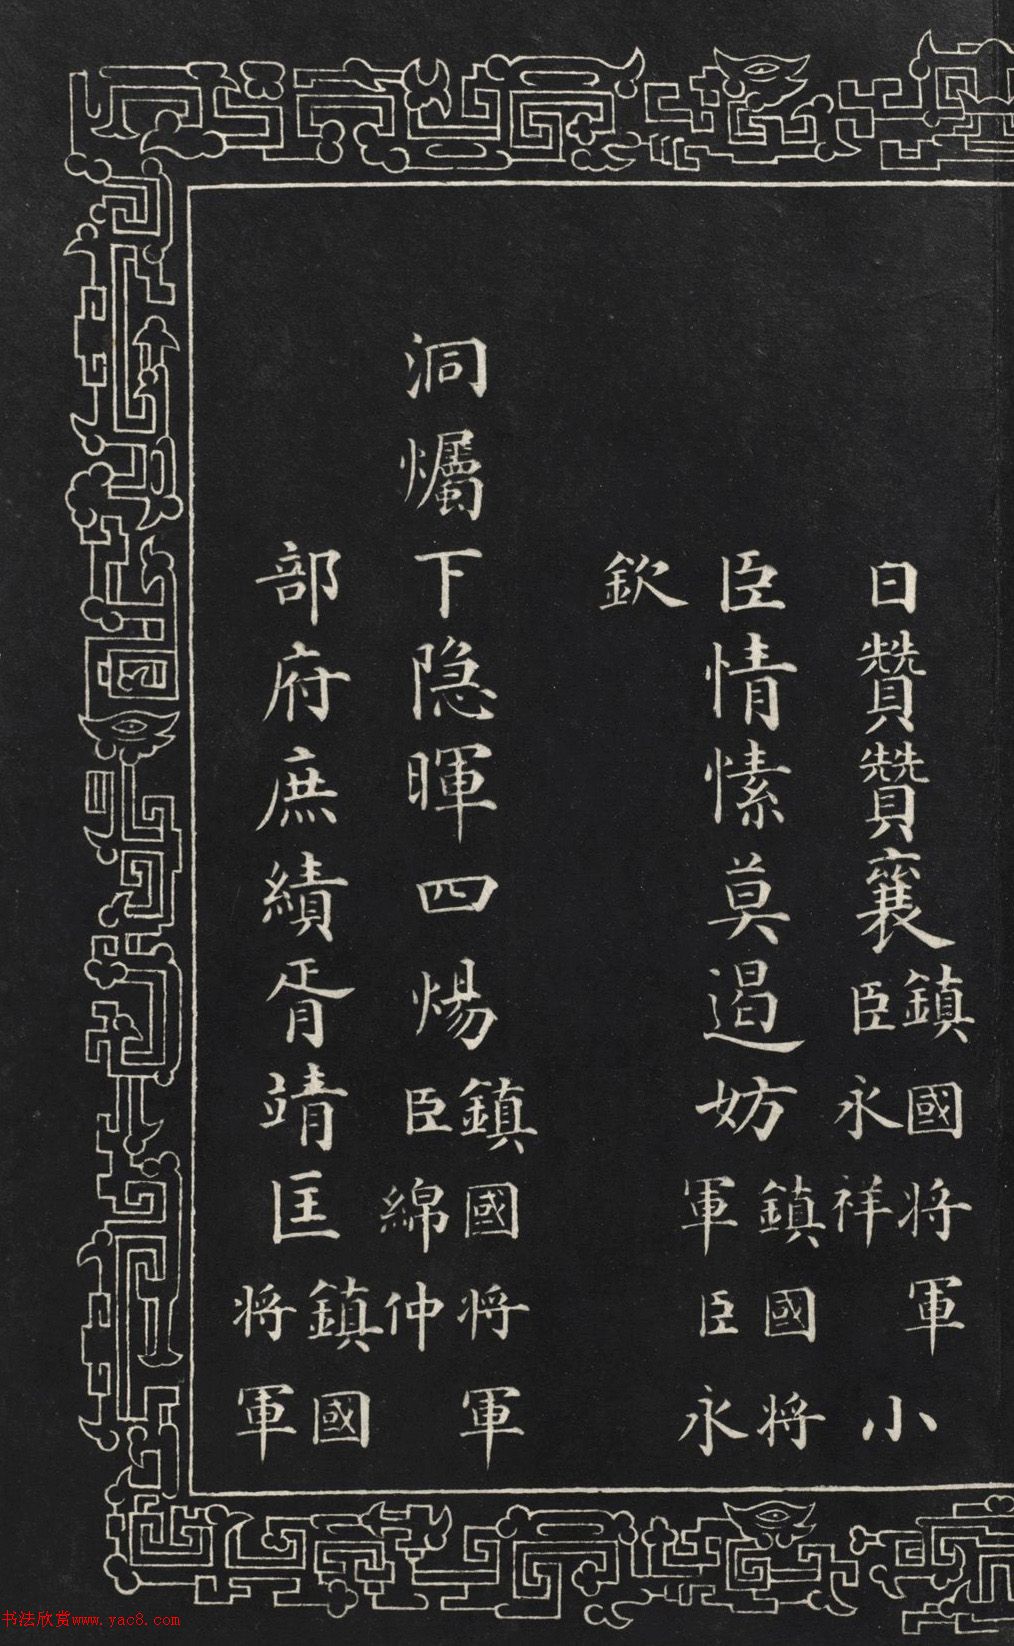 曰贊贊襄鎮國將軍臣永祥小
臣情愫莫遏妨鎮國將軍臣永
欽
洞爥下隐暉四煬鎮國將軍臣綿仲
部府庶績胥靖匡鎮國將軍
书法欣赏www.yac8.com